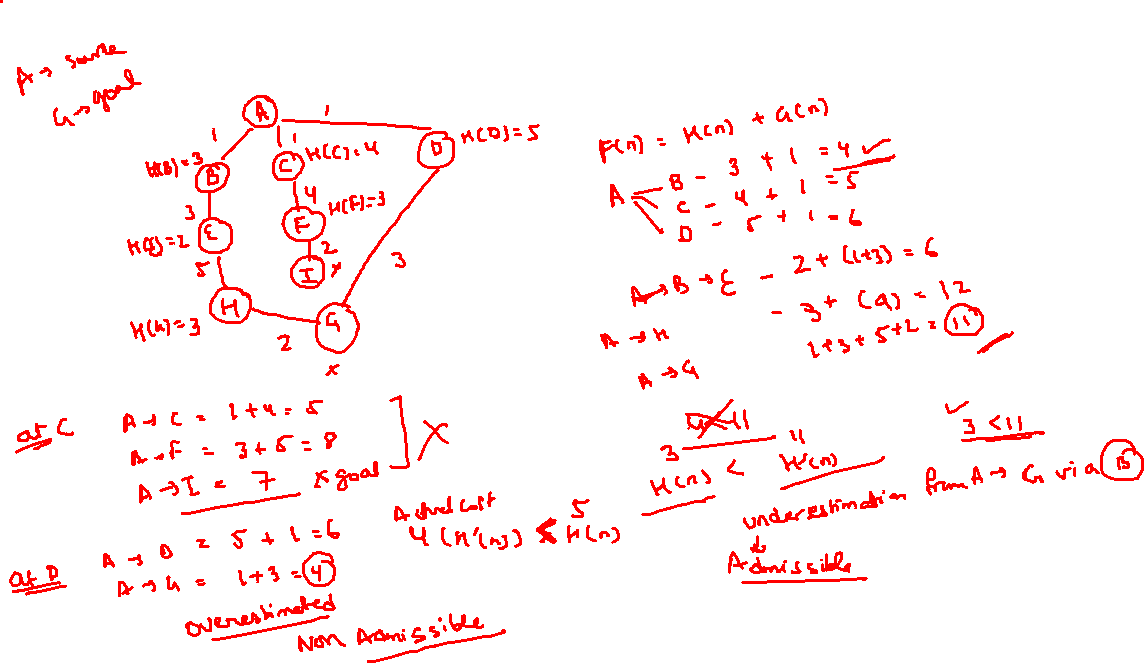 A → source
G → goal
A
1
1
1
B
H(B)=3
C
H(C)=4
D
H(D)=5
3
4
E
H(E)=2
F
H(F)=3
5
2
3
I
x
H
H(H)=3
2
G
x
F(n) = H(n) + G(n)
A
B - 3 + 1 = 4 ✓
C - 4 + 1 = 5
D - 5 + 1 = 6
A → B → E - 2 + (1+3) = 6
A → H - 3 + (9) = 12
A → G 1+3+5+2 = 11
at C
A → C = 1+4 = 5
A → F = 3+5 = 8
A → I = 7 x goal
X
at D
A → D = 5 + 1 = 6
A → G = 1+3 = 4
overestimated
Non Admissible
Actual cost 5
4 (H'(n)) < H(n)
3 11
H(n) < H'(n)
✓
3 < 11
underestimation from A → G via B
↓
Admissible